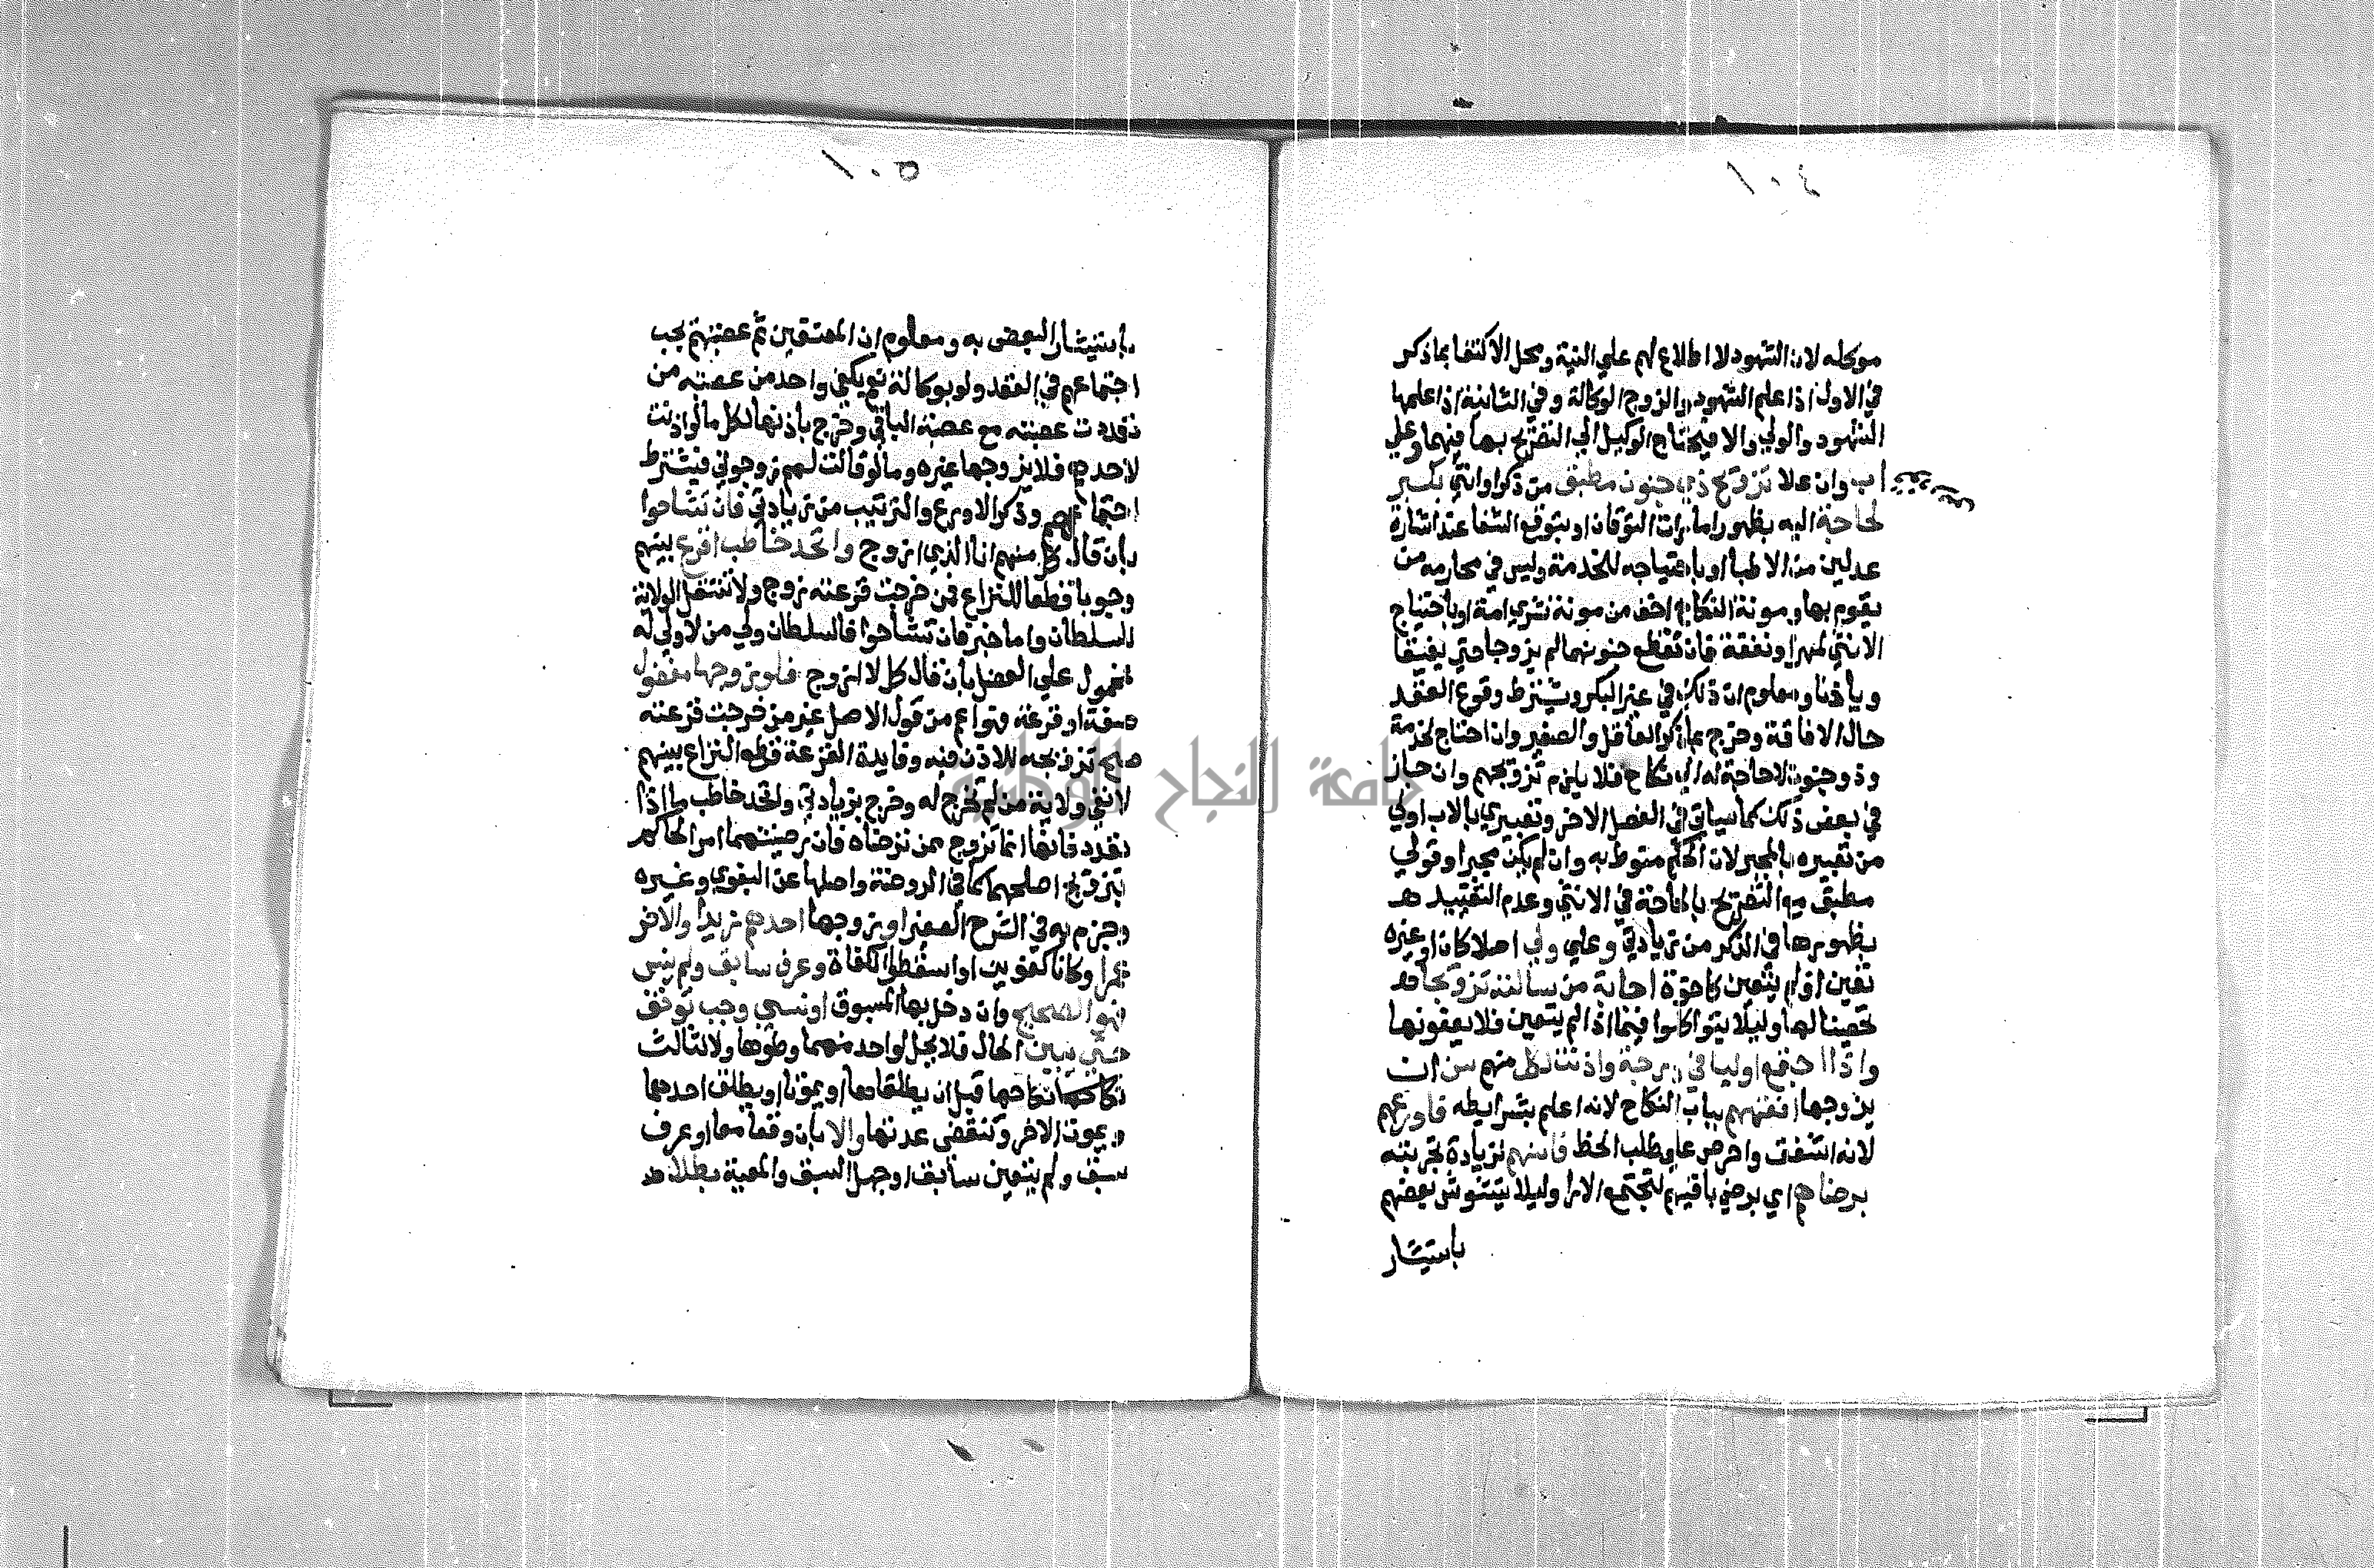 ١٠٤
موكله لان الشهود لا اطلاع لهم علي النية ومحل الاكتفا بما ذكر
في الاولي اذا علم الشهود والزوج الوكالة وفي الثانية اذا علمها
الشهود والولي والا فيحتاج الوكيل الي التصريح بها فيهما وعلي
اب وان علا تزويج ذي جنون مطبق من ذكر او انثي بكبر
لحاجة اليه بظهور امارات التوقان او بتوقع الشفا عند اشارة
عدلين من الاطبا او باحتياجه للخدمة وليس في محارمه من
يقوم بها ومونة النكاح اخف من مونة شري امة او باحتياج
الانثي لمهر او نفقة فان تقطع جنونهما لم يزوجا حتي يفيقا
وياذنا ومعلوم ان ذلك في غير البكر ويشترط وقوع العقد
حال الافاقة وخرج بما ذكر العاقل والصغير وان احتاج لخدمة
وذو جنون لا حاجة له الي نكاح فلا يلزم تزويجهم وان جاز
في بعض ذلك كما سياتي في الفصل الاخر وتعبيري بالاب اولي
من تعبيره بالمجبر لان الحكم منوط به وان لم يكن مجبرا وقولي
مطبق مع التصريح بالحاجة في الانثي وعدم التقييد
بظهورها في الذكر من زيادتي وعلي ولي اصلا كان او غيره
تعين او لم يتعين كاخوة اجابة من سالته تزويجا
تحصينا لها وليلا يتواكلوا فيما اذا لم يتعين فلا يعفونها
واذا اجتمع اوليا في درجة واذنت لكل منهم سن ان
يزوجها افقههم بباب النكاح لانه اعلم بشرايطه فاورعهم
لانه اشفق واحرص علي طلب الحظ فاسنهم لزيادة تجربته
برضاهم اي برضي باقيهم لتجتمع الارا وليلا يتشوش بعضهم
باستيثار
١٠٥
باستيثار البعض به ومعلوم ان المعتقين ثم عصبتهم يجب
اجتماعهم في العقد ولو بوكالة نعم يكفي واحد من عصبته من
تعددت عصبته مع عصبة الباقي وخرج باذنها لكل ما لو اذنت
لاحدهم فلا يزوجها غيره وما لو قالت لهم زوجوني فيشترط
اجتماعهم وذكر الاورع والترتيب من زيادتي فان تشاحوا
بان قال كل منهم انا الذي ازوج واتحد خاطب اقرع بينهم
وجوبا قطعا للنزاع فمن خرجت قرعته زوج ولا تنتقل الولاية
للسلطان واما خبر فان تشاحوا فالسلطان ولي من لا ولي له
فمحمول علي العضل بان قال كل لا ازوج فلو زوجها مفضول
صفة او قرعة هو اعم من قول الاصل غير من خرجت قرعته
صح تزويجه للاذن فيه وفايدة القرعة قطع النزاع بينهم
لا نفي ولاية من لم تخرج له وخرج بزيادتي واتحد خاطب ما اذا
تعدد فانها انما تزوج ممن ترضاه فان رضيتهما امر الحاكم
بتزويج اصلحهما كما في الروضة واصلها عن البغوي وغيره
وجزم به في الشرح الصغير او زوجها احدهم زيدا والاخر
عمرا وكانا كفوين او اسقطوا الكفاة وعرف سابق ولم ينس
فهو الصحيح وان دخل بها المسبوق او نسي وجب توقف
حتي يبين الحال فلا يحل لواحد منهما وطؤها ولا لثالث
نكاحها قبل ان يطلقاها او يموتا او يطلق احدهما
ويموت الاخر وتنقضي عدتها والا بان وقعا معا او عرف
سبق ولم يتعين سابق او جهل السبق والمعية بطلا
جامعة النجاح الوطنية